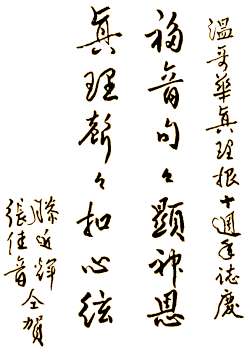 溫哥華真理根十週年誌慶
福音句々顯神恩
真理聲々扣心弦
滕近輝
張佳音 仝賀